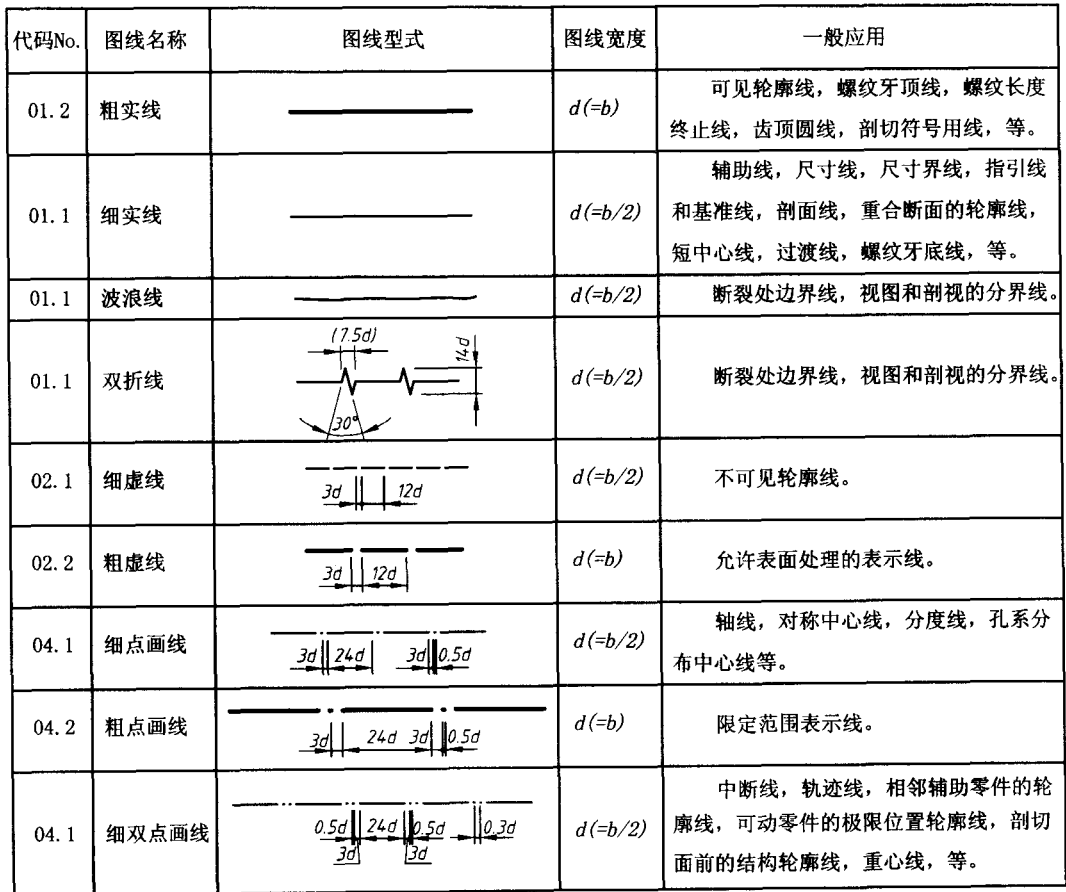 代码No. 图线名称 图线型式 图线宽度 一般应用
01.2 粗实线 d(=b) 可见轮廓线，螺纹牙顶线，螺纹长度
终止线，齿顶圆线，剖切符号用线，等。
01.1 细实线 d(=b/2) 辅助线，尺寸线，尺寸界线，指引线
和基准线，剖面线，重合断面的轮廓线，
短中心线，过渡线，螺纹牙底线，等。
01.1 波浪线 d(=b/2) 断裂处边界线，视图和剖视的分界线。
01.1 双折线 (7.5d) 14d 30° d(=b/2) 断裂处边界线，视图和剖视的分界线。
02.1 细虚线 3d 12d d(=b/2) 不可见轮廓线。
02.2 粗虚线 3d 12d d(=b) 允许表面处理的表示线。
04.1 细点画线 3d 24d 3d 0.5d d(=b/2) 轴线，对称中心线，分度线，孔系分
布中心线等。
04.2 粗点画线 3d 24d 3d 0.5d d(=b) 限定范围表示线。
04.1 细双点画线 0.5d 24d 0.5d 0.3d 3d 3d d(=b/2) 中断线，轨迹线，相邻辅助零件的轮
廓线，可动零件的极限位置轮廓线，剖切
面前的结构轮廓线，重心线，等。